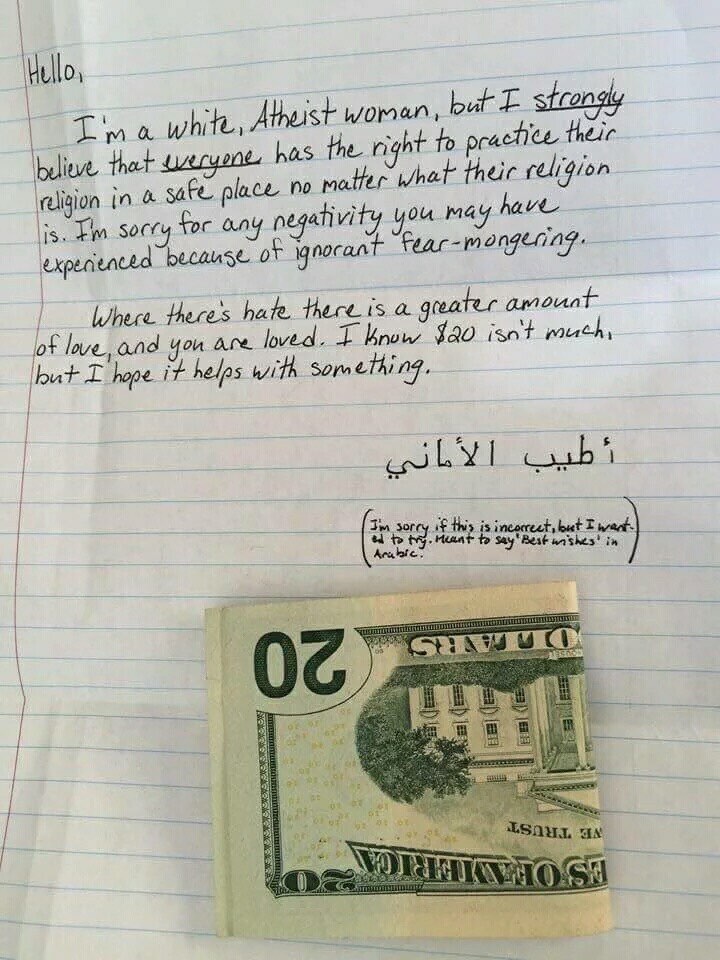 Hello,
I'm a white, Atheist woman, but I strongly
believe that everyone has the right to practice their
religion in a safe place no matter what their religion
is. I'm sorry for any negativity you may have
experienced because of ignorant fear-mongering.
Where there's hate there is a greater amount
of love, and you are loved. I know $20 isn't much,
but I hope it helps with something.
أطيب الأماني
(I'm sorry if this is incorrect, but I want-
ed to try. Meant to say 'Best wishes' in
Arabic.)
20
OLLARS
WE TRUST
ES OF AMERICA
20